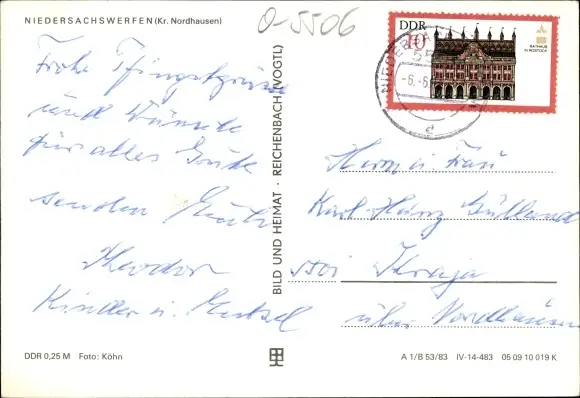 NIEDERSACHSWERFEN (Kr. Nordhausen)
O-5506
DDR
10
RATHAUS
IN ROSTOCK
Frohe Pfingstgrüße
und Wünsche
für alles Gute
senden
Theodor
Kinder u. Enkel
BILD UND HEIMAT · REICHENBACH (VOGTL)
Herrn u. Frau
Karl-Heinz
5501 Kraja
über Nordhausen
DDR 0,25 M Foto: Köhn
A 1/B 53/83 IV-14-483 05 09 10 019 K